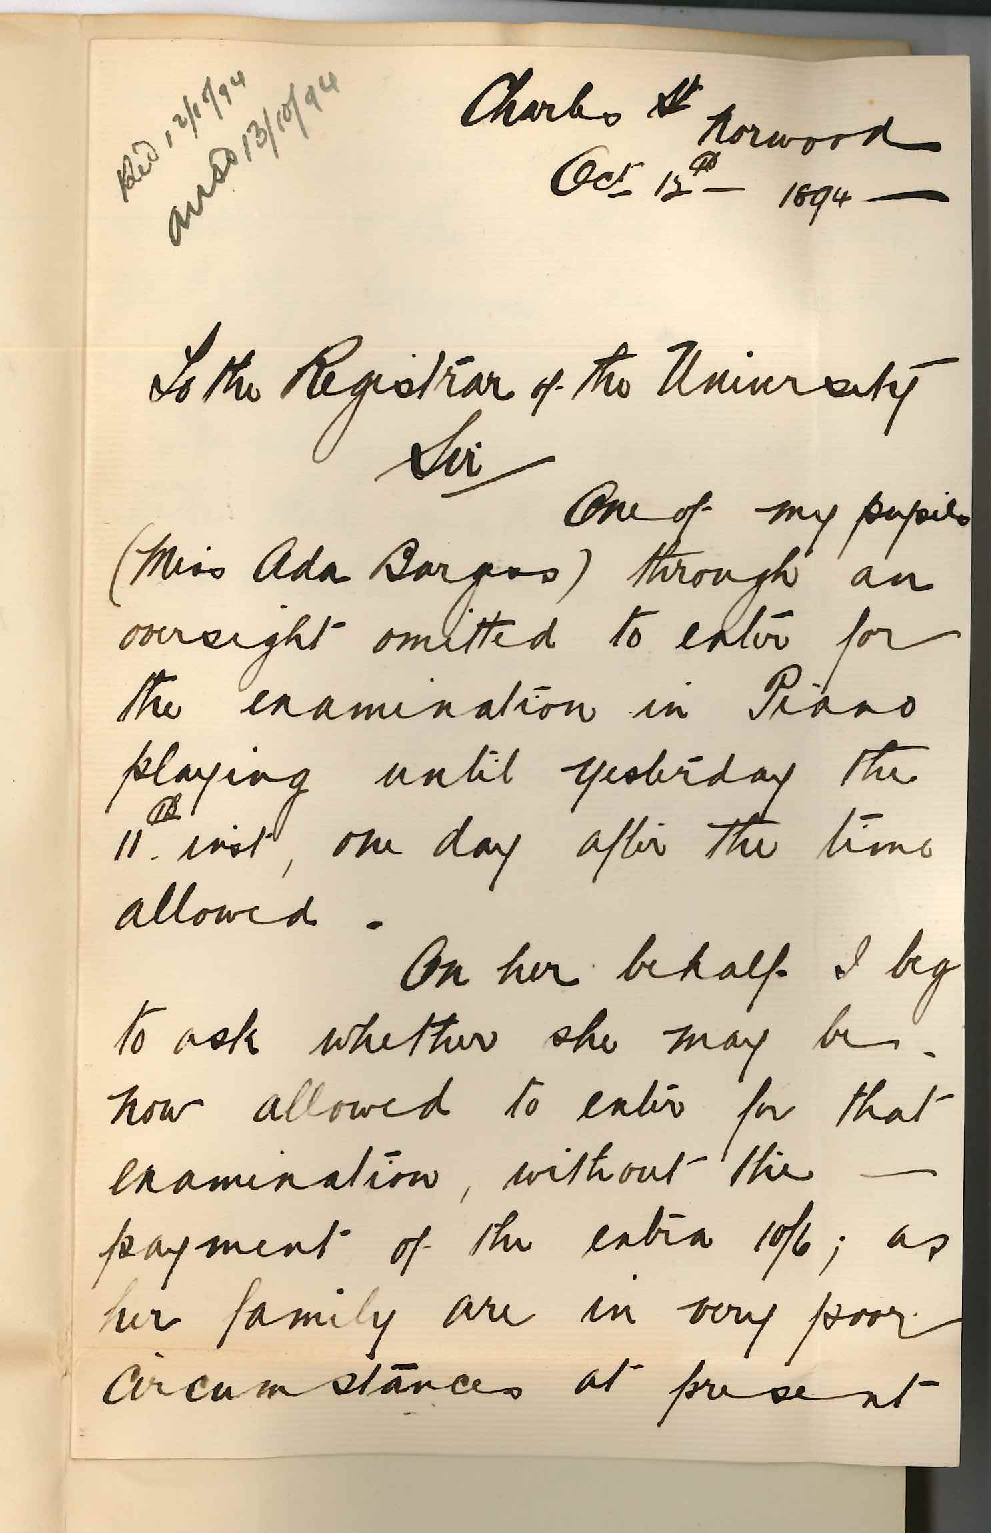 Recd 12/10/94
ansd 13/10/94
Charles St
Norwood
Oct 12th 1894
To the Registrar of the University
Sir
One of my pupils
(Miss Ada Burgess) through an
oversight omitted to enter for
the examination in Piano
playing until yesterday the
11th inst, one day after the time
allowed.
On her behalf I beg
to ask whether she may be
now allowed to enter for that
examination, without the
payment of the extra 10/6; as
her family are in very poor
circumstances at present